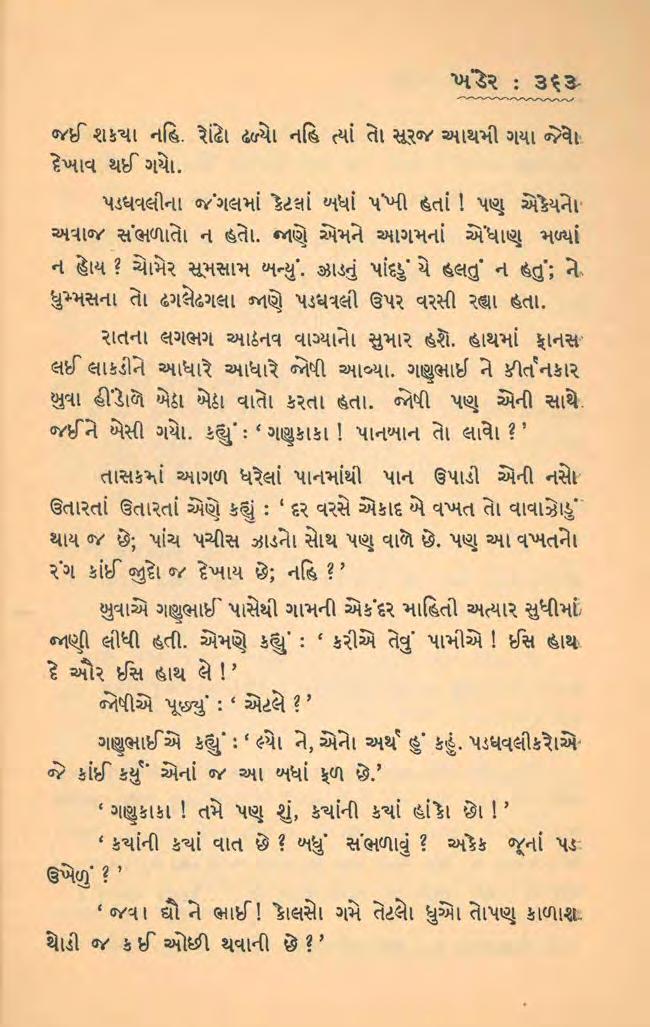 ખંડેર : ૩૬૩
જઈ શકયા નહિ. રોંઢો ઢળ્યો નહિ ત્યાં તો સૂરજ આથમી ગયા જેવો
દેખાવ થઈ ગયો.
પડધવલીના જંગલમાં કેટલાં બધાં પંખી હતાં ! પણ એકેયનો
અવાજ સંભળાતો ન હતો. જાણે એમને આગમનાં એંધાણ મળ્યાં
ન હોય ? ચોમેર સૂમસામ બન્યું. ઝાડનું પાંદડું યે હલતું ન હતું; ને
ધુમ્મસના તો ઢગલેઢગલા જાણે પડધવલી ઉપર વરસી રહ્યા હતા.
રાતના લગભગ આઠનવ વાગ્યાનો સુમાર હશે. હાથમાં ફાનસ
લઈ લાકડીને આધારે આધારે જોષી આવ્યા. ગણુભાઈ ને કીર્તનકાર
બુવા હીંડોળે બેઠા બેઠા વાતો કરતા હતા. જોષી પણ એની સાથે
જઈને બેસી ગયો. કહ્યું : ‘ ગણુકાકા ! પાનબાન તો લાવો ? ’
તાસકમાં આગળ ધરેલાં પાનમાંથી પાન ઉપાડી એની નસો
ઉતારતાં ઉતારતાં એણે કહ્યું : ‘ દર વરસે એકાદ બે વખત તો વાવાઝોડું
થાય જ છે; પાંચ પચીસ ઝાડનો સોથ પણ વાળે છે. પણ આ વખતનો
રંગ કાંઈ જુદો જ દેખાય છે; નહિ ? ’
બુવાએ ગણુભાઈ પાસેથી ગામની એકંદર માહિતી અત્યાર સુધીમાં
જાણી લીધી હતી. એમણે કહ્યું : ‘ કરીએ તેવું પામીએ ! ઈસ હાથ
દે ઔર ઈસ હાથ લે ! ’
જોષીએ પૂછ્યું : ‘ એટલે ? ’
ગણુભાઈએ કહ્યું : ‘ લ્યો ને, એનો અર્થ હું કહું. પડધવલીકરોએ
જે કાંઈ કર્યું એનાં જ આ બધાં ફળ છે.’
‘ ગણુકાકા ! તમે પણ શું, કયાંની કયાં હાંકો છો ! ’
‘ કયાંની કયાં વાત છે ? બધું સંભળાવું ? અકેક જૂનાં પડ
ઉખેળું ? ’
‘ જવા દ્યૌ ને ભાઈ ! કોલસો ગમે તેટલો ધુઓ તોપણ કાળાશ
થોડી જ કંઈ ઓછી થવાની છે ? ’